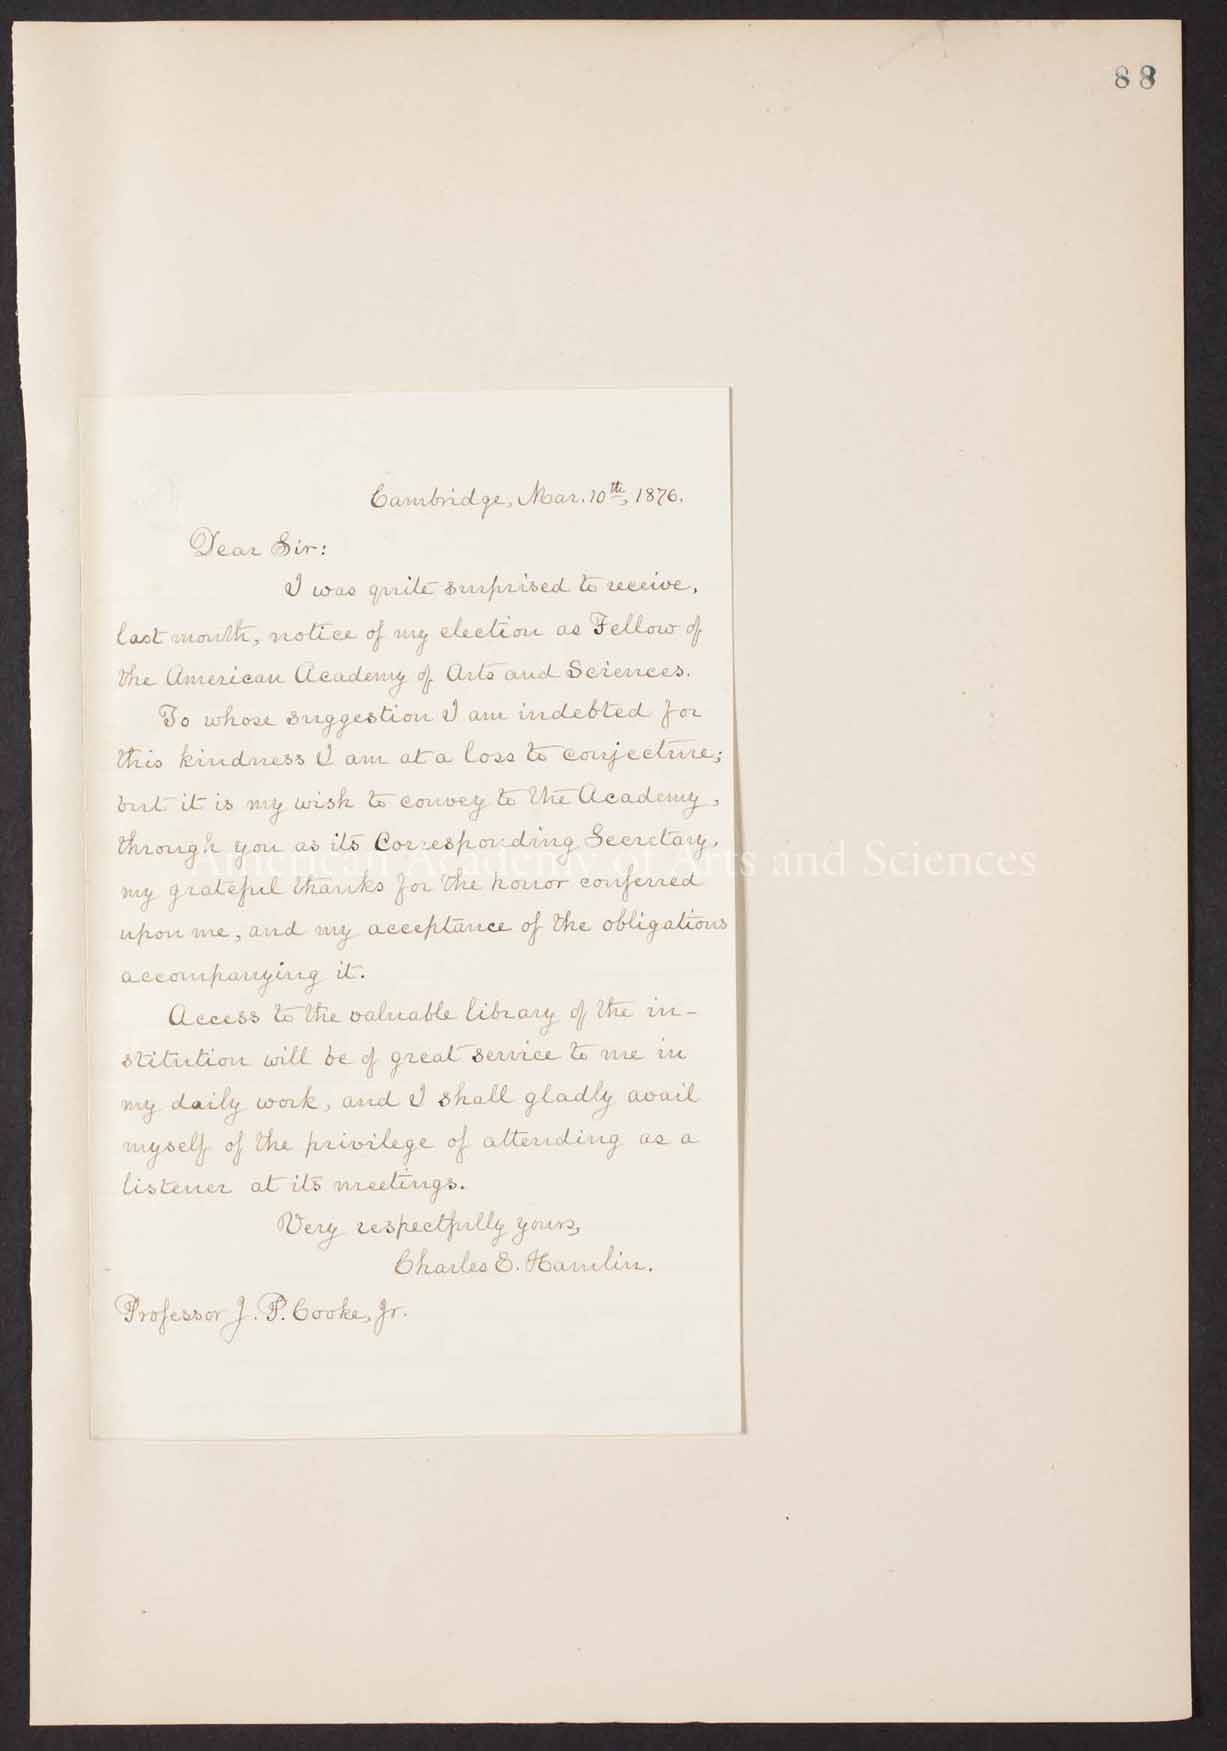 88
Cambridge, Mar. 10th, 1876.
Dear Sir:
I was quite surprised to receive,
last month, notice of my election as Fellow of
the American Academy of Arts and Sciences.
To whose suggestion I am indebted for
this kindness I am at a loss to conjecture;
but it is my wish to convey to the Academy,
through you as its Corresponding Secretary,
my grateful thanks for the honor conferred
upon me, and my acceptance of the obligations
accompanying it.
Access to the valuable library of the in-
stitution will be of great service to me in
my daily work, and I shall gladly avail
myself of the privilege of attending as a
listener at its meetings.
Very respectfully yours,
Charles E. Hamlin.
Professor J. P. Cooke, Jr.
American Academy of Arts and Sciences